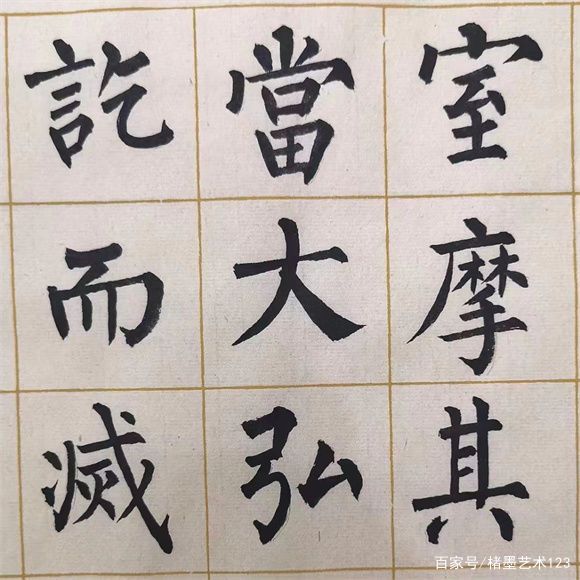 室摩其
當大弘
訖而滅
百家号/楮墨艺术123